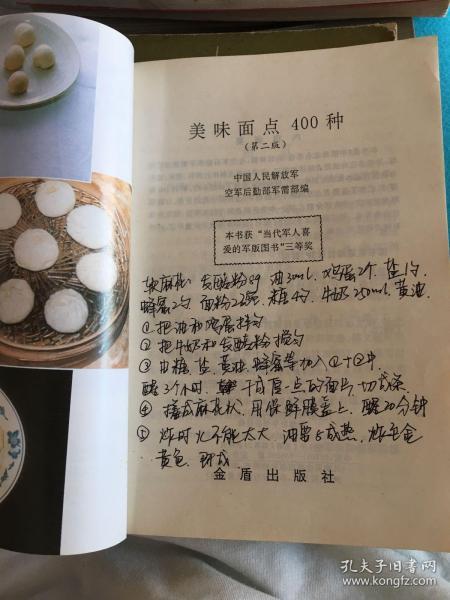 美味面点 400 种
(第二版)
中国人民解放军
空军后勤部军需部编
本书获“当代军人喜
爱的军版图书”三等奖
软麻花: 发酵粉8g 油30ml 鸡蛋2个 盐1勺
蜂蜜2勺 面粉2碗 糖4勺 牛奶250ml 黄油
①把油和鸡蛋拌匀
②把牛奶和发酵粉搅匀
③白糖、盐、黄油、蜂蜜等加入①+②中
醒3个小时, 擀成厚一点的面片, 切成条
④搓成麻花状, 用保鲜膜盖上, 醒20分钟
⑤炸时火不能太大, 油要5成热, 炸至金
黄色 即成
金盾出版社
孔夫子旧书网
www.kongfz.com